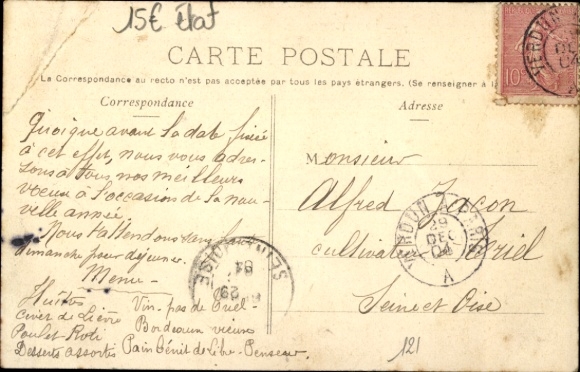 15€ Etat
CARTE POSTALE
La Correspondance au recto n'est pas acceptée par tous les pays étrangers. (Se renseigner à l
Correspondance
Adresse
Quoique avant la date fixée
à cet effet, nous vous adres-
sons à tous, nos meilleurs
voeux à l'occasion de la nou-
velle année.
Nous t'attendons sans faute
dimanche pour déjeuner.
Menu
Huîtres
Civet de Lièvre
Poulet-Roti
Desserts assortis
Vin-pas de Triel-
Bordeaux vieux
Pain bénit de Libre-Penseur
Monsieur
Alfred Jacon
cultivateur Triel
Seine et Oise
121
10
VERDUN
DEC
04
VERDUN
29
DEC
04
SEINE-ET-OISE
29
04